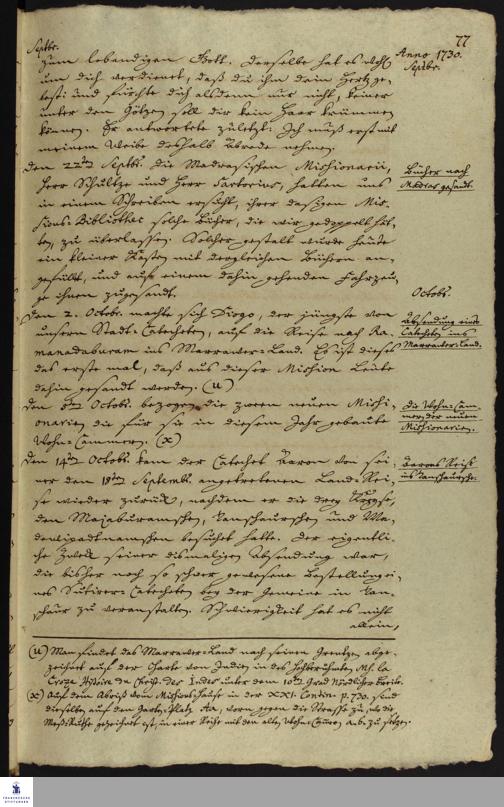 77
Septbr.
Anno 1730.
Septbr.
zum lebendigen Gott. Derselbe hat es wohl
um dich verdienet, daß du ihm dein Hertz ge-
best: und fürchte dich alsdenn nur nicht, keiner
unter den Götzen soll dir kein Haar krümmen
können. Er antwortete zuletzt: Ich muß erst mit
meinem Weibe deshalb Abrede nehmen.
Den 22ten Septbr. die Madrasischen Missionarii,
Herr Schultze und Herr Sartorius, hatten uns
in einem Schreiben ersucht, ihrer dasigen Mis-
sions-Bibliothec solche Bücher, die wir gedoppelt hät-
ten, zu überlassen. Solcher gestalt wurde heute
ein kleiner Kasten mit dergleichen Büchern an-
gefüllt, und auf einem dahin gehenden Fahrzeu-
ge ihnen zugesandt.
Bücher nach
Madras gesandt.
Octobr.
Den 2. Octobr. machte sich Diogo, der jüngste von
unsern Stadt-Catecheten, auf die Reise nach Ra-
manadaburam ins Marrawer-Land. Es ist dieses
das erste mal, daß aus dieser Mission Leute
dahin gesandt werden. (u)
Absendung eines
Catecheten ins
Marrawer-Land.
Den Octobr. bezogen die zween neuen Missi-
onarien die für sie in diesem Jahr gebaute
Wohn-Cammern. (x)
Die Wohn-Cam-
mern der neuen
Missionarien.
Den 14ten Octobr. kam der Catechet Aaron von sei-
ner den 18ten Septemb. angetretenen Land-Rei-
se wieder zurück, nachdem er die drey
den Majaburamschen, Tanschaurschen und Ma-
dewipadtnamschen besuchet hatte. Der eigentli-
che Zweck seiner dismaligen Absendung war,
die bisher noch so schwer gewesene Bestellung ei-
nes Catecheten bey der Gemeine in Tan-
schaur zu veranstalten. Schwierigkeit hat es nicht
allein,
Aarons Reise
ins Tanschaursche.
(u) Man findet das Marrawer-Land nach seinen Grentzen abge-
zeichnet auf der Charte von Indien in des Hochberühmten Mr. la
Croze Histoire du Christ. des Indes unter dem 10ten Grad Nördlicher Breite.
(x) Auf dem Abriß vom Missions-Hause in der XXI. Contin. p. 730. sind
dieselben auf den Garten-Platz Aa, vorn gegen die Strasse zu, wo die
gezeichnet ist, in einer Reihe mit den alten Wohn- a. b. zu setzen.
FRANCKESCHE
STIFTUNGEN